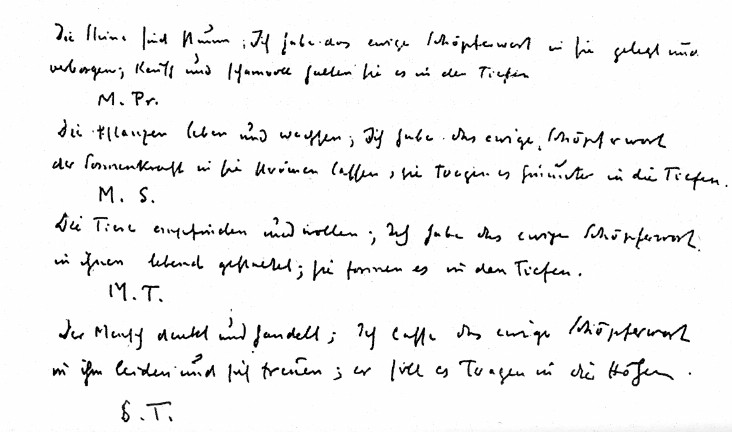 Die Steine sind stumm; Ich habe das ewige Schöpferwort in sie gelegt und
verborgen; keusch und schamvoll halten sie es in den Tiefen
M. Pr.
Die Pflanzen leben und wachsen; Ich habe das ewige Schöpferwort
der Sonnenkraft in sie strömen lassen, sie tragen es hinunter in die Tiefen.
M. S.
Die Tiere empfinden und wollen; Ich habe das ewige Schöpferwort
in ihnen lebend gestaltet; sie formen es in den Tiefen.
M. T.
Der Mensch denkt und handelt; Ich lasse das ewige Schöpferwort
in ihm leiden und sich freuen; er soll es tragen in die Höhen.
S. T.